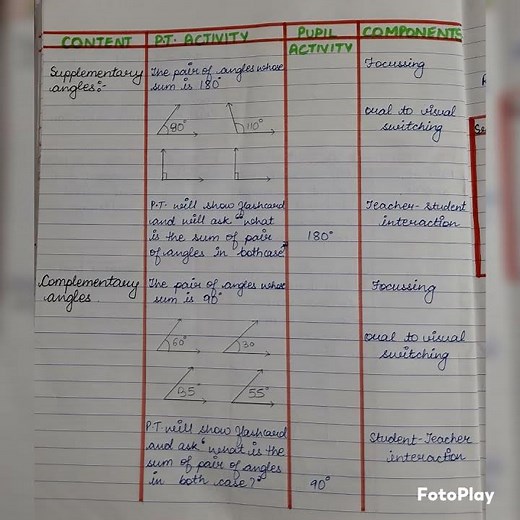 CONTENT P.T. ACTIVITY PUPIL ACTIVITY COMPONENTS
Supplementary angles:-
The pair of angles whose
sum is 180°
Focussing
80° 110°
oual to visual
switching
P.T. will show flashcard
and will ask "what
is the sum of pair
of angles in bothcase"
180°
Teacher-Student
interaction
Complementary
angles
The pair of angles whose
sum is 90°
Focussing
60° 30
oual to visual
switching
35° 55°
P.T. will show flashcard
and ask "what is the
sum of pair of angles
in both case?"
90°
Student-Teacher
interaction
FotoPlay